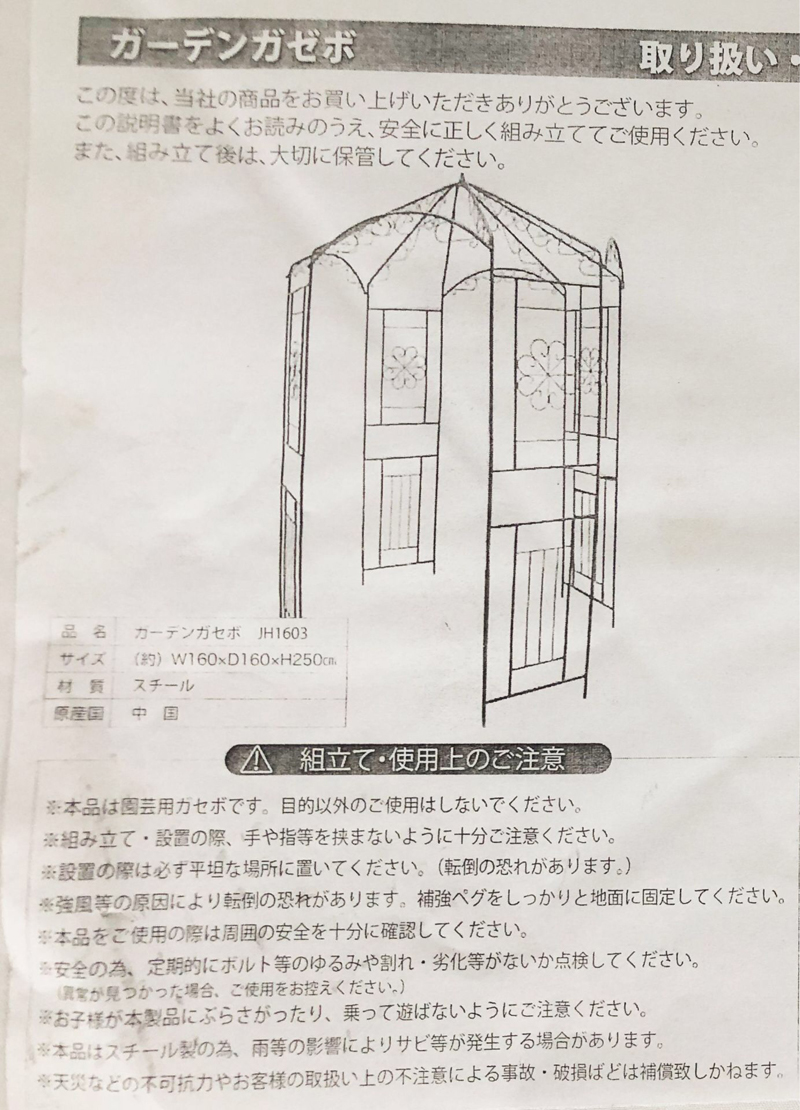 ガーデンガゼボ
取り扱い・
この度は、当社の商品をお買い上げいただきありがとうございます。
この説明書をよくお読みのうえ、安全に正しく組み立ててご使用ください。
また、組み立て後は、大切に保管してください。
品 名 ガーデンガゼボ JH1603
サイズ (約) W160×D160×H250㎝
材 質 スチール
原産国 中 国
組立て・使用上のご注意
※本品は園芸用ガセボです。目的以外のご使用はしないでください。
※組み立て・設置の際、手や指等を挟まないように十分ご注意ください。
※設置の際は必ず平坦な場所に置いてください。(転倒の恐れがあります。)
※強風等の原因により転倒の恐れがあります。補強ペグをしっかりと地面に固定してください。
※本品をご使用の際は周囲の安全を十分に確認してください。
※安全の為、定期的にボルト等のゆるみや割れ・劣化等がないか点検してください。
(異常が見つかった場合、ご使用をお控えください。)
※お子様が本製品にぶらさがったり、乗って遊ばないようにご注意ください。
※本品はスチール製の為、雨等の影響によりサビ等が発生する場合があります。
※天災などの不可抗力やお客様の取扱い上の不注意による事故・破損ばどは補償致しかねます。